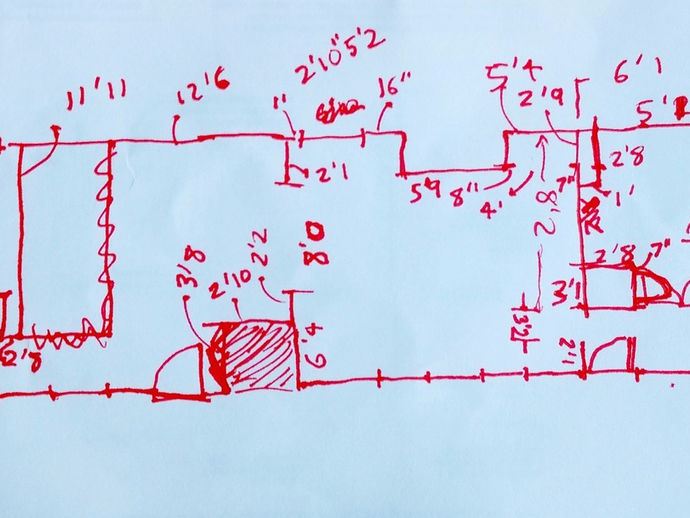 11'11
12'6
1"
2'10"5'2
16"
5'4
2'9
6'1
5'
2'1
5'9
8"
4'
8'2
7"
2'8
1'
3'8
2'10
2'2
8'0
6'4
2'8
7"
3'1
3'2
2'1
2'8